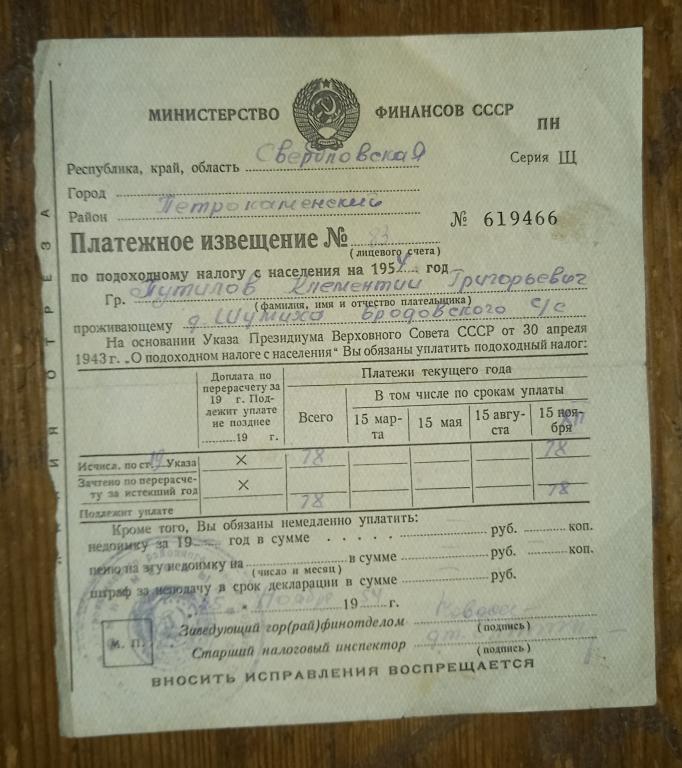 МИНИСТЕРСТВО ФИНАНСОВ СССР
ПН
Республика, край, область Свердловская
Серия Щ
Город
Район Петрокаменский
№ 619466
Платежное извещение № 23
(лицевого счета)
по подоходному налогу с населения на 1954 год
Гр. Путилов Клементий Григорьевич
(фамилия, имя и отчество плательщика)
проживающему д. Шумиха Бродовского с/с
На основании Указа Президиума Верховного Совета СССР от 30 апреля
1943 г. „О подоходном налоге с населения" Вы обязаны уплатить подоходный налог:
Доплата по перерасчету за 19 г. Подлежит уплате не позднее 19 г.
Платежи текущего года
Всего
В том числе по срокам уплаты
15 марта
15 мая
15 августа
15 ноября
Исчисл. по ст. 19 Указа × 78 78
Зачтено по перерасчету за истекший год ×
Подлежит уплате 78 78
Кроме того, Вы обязаны немедленно уплатить:
недоимку за 19 год в сумме руб. коп.
пеню на эту недоимку на в сумме руб. коп.
(число и месяц)
штраф за неподачу в срок декларации в сумме руб.
ноября 1954 г.
Заведующий гор(рай)финотделом
(подпись)
М. П.
Старший налоговый инспектор
(подпись)
ВНОСИТЬ ИСПРАВЛЕНИЯ ВОСПРЕЩАЕТСЯ
ЛИНИЯ ОТРЕЗА